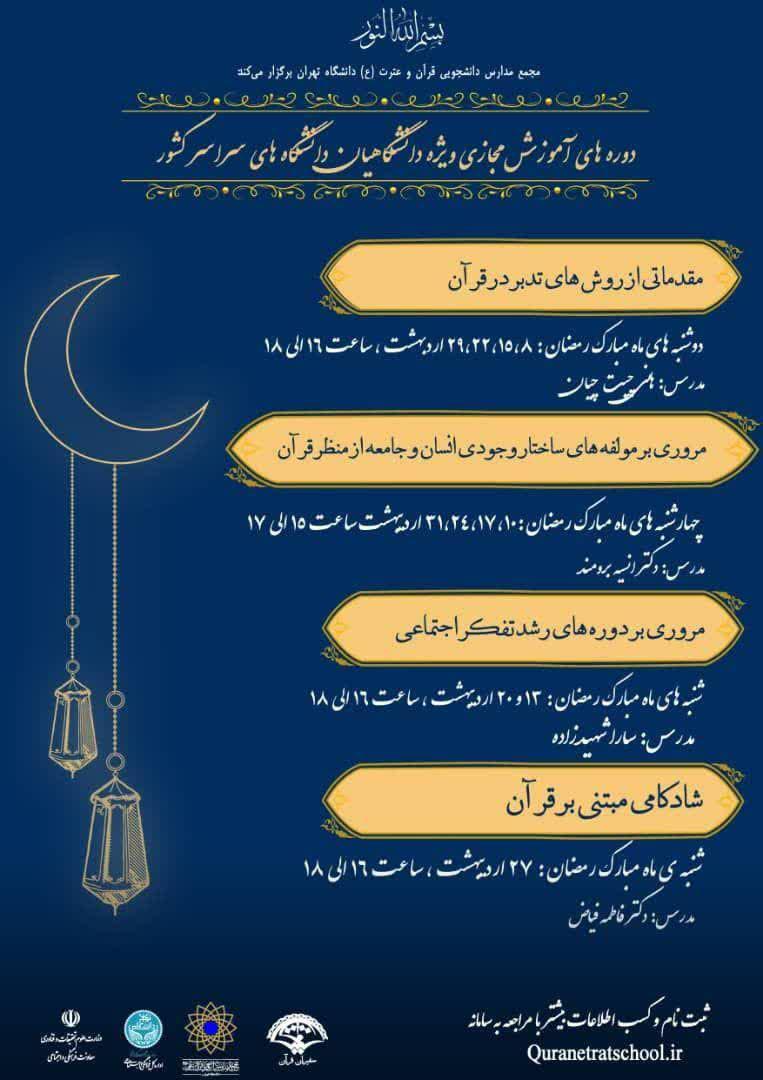 بسم الله النور
مجمع مدارس دانشجویی قرآن و عترت (ع) دانشگاه تهران برگزار می‌کند:
دوره های آموزش مجازی ویژه دانشگاهیان دانشگاه های سراسر کشور
مقدماتی از روش های تدبر در قرآن
دوشنبه های ماه مبارک رمضان: ۸، ۱۵، ۲۲، ۲۹ اردیبهشت، ساعت ۱۶ الی ۱۸
مدرس: هانی چیت چیان
مروری بر مولفه های ساختار وجودی انسان و جامعه از منظر قرآن
چهارشنبه های ماه مبارک رمضان: ۱۰، ۱۷، ۲۴، ۳۱ اردیبهشت ساعت ۱۵ الی ۱۷
مدرس: دکتر انسیه برومند
مروری بر دوره های رشد تفکر اجتماعی
شنبه های ماه مبارک رمضان: ۱۳ و ۲۰ اردیبهشت، ساعت ۱۶ الی ۱۸
مدرس: سارا شهیدزاده
شادکامی مبتنی بر قرآن
شنبه ی ماه مبارک رمضان: ۲۷ اردیبهشت، ساعت ۱۶ الی ۱۸
مدرس: دکتر فاطمه فیاض
ثبت نام و کسب اطلاعات بیشتر با مراجعه به سامانه
Quranetratschool.ir
سفیران قرآن
وزارت علوم تحقیقات و فناوری
معاونت فرهنگی و اجتماعی